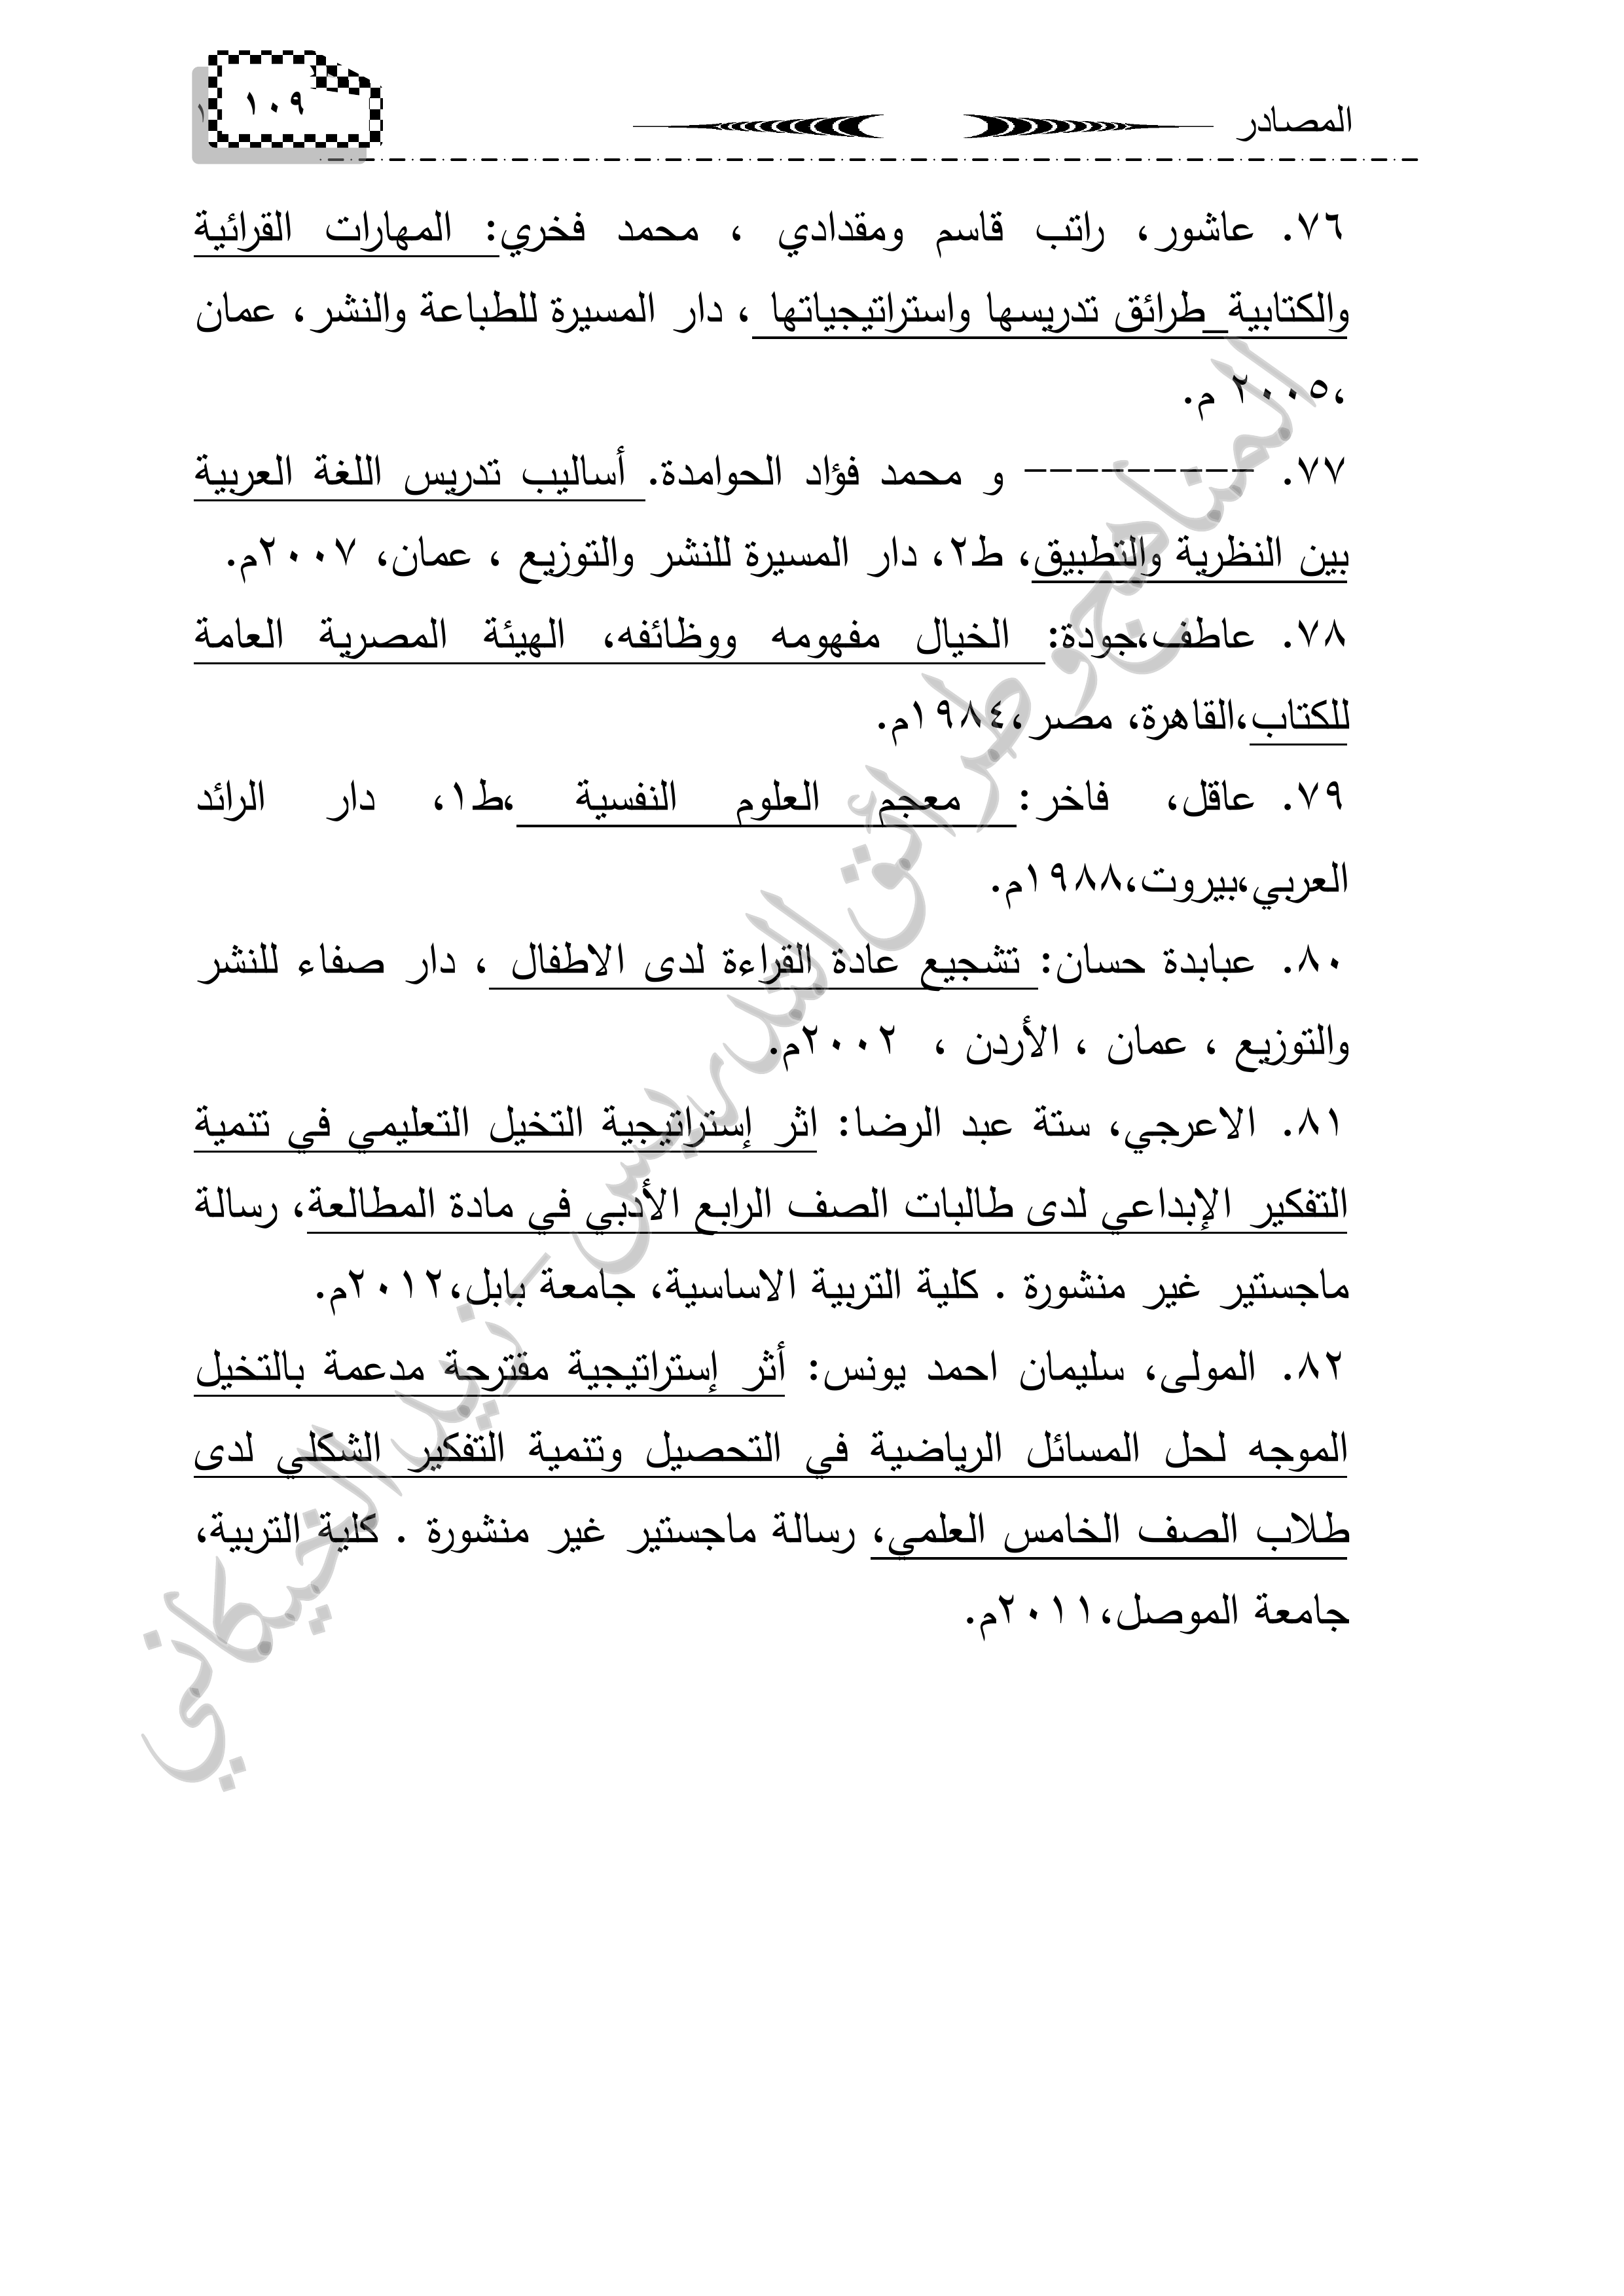 المصادر
١٠٩
٧٦. عاشور، راتب قاسم ومقدادي ، محمد فخري: المهارات القرائية
والكتابية_طرائق تدريسها واستراتيجياتها ، دار المسيرة للطباعة والنشر، عمان
،٢٠٠٥ م.
٧٧. ---------- و محمد فؤاد الحوامدة. أساليب تدريس اللغة العربية
بين النظرية والتطبيق، ط٢، دار المسيرة للنشر والتوزيع ، عمان، ٢٠٠٧م.
٧٨. عاطف،جودة: الخيال مفهومه ووظائفه، الهيئة المصرية العامة
للكتاب،القاهرة، مصر،١٩٨٤م.
٧٩. عاقل، فاخر: معجم العلوم النفسية ،ط١، دار الرائد
العربي،بيروت،١٩٨٨م.
٨٠. عبابدة حسان: تشجيع عادة القراءة لدى الاطفال ، دار صفاء للنشر
والتوزيع ، عمان ، الأردن ، ٢٠٠٢م.
٨١. الاعرجي، ستة عبد الرضا: اثر إستراتيجية التخيل التعليمي في تنمية
التفكير الإبداعي لدى طالبات الصف الرابع الأدبي في مادة المطالعة، رسالة
ماجستير غير منشورة . كلية التربية الاساسية، جامعة بابل،٢٠١٢م.
٨٢. المولى، سليمان احمد يونس: أثر إستراتيجية مقترحة مدعمة بالتخيل
الموجه لحل المسائل الرياضية في التحصيل وتنمية التفكير الشكلي لدى
طلاب الصف الخامس العلمي، رسالة ماجستير غير منشورة . كلية التربية،
جامعة الموصل،٢٠١١م.
المناهج و طرائق التدريس - زيد الخيكاني